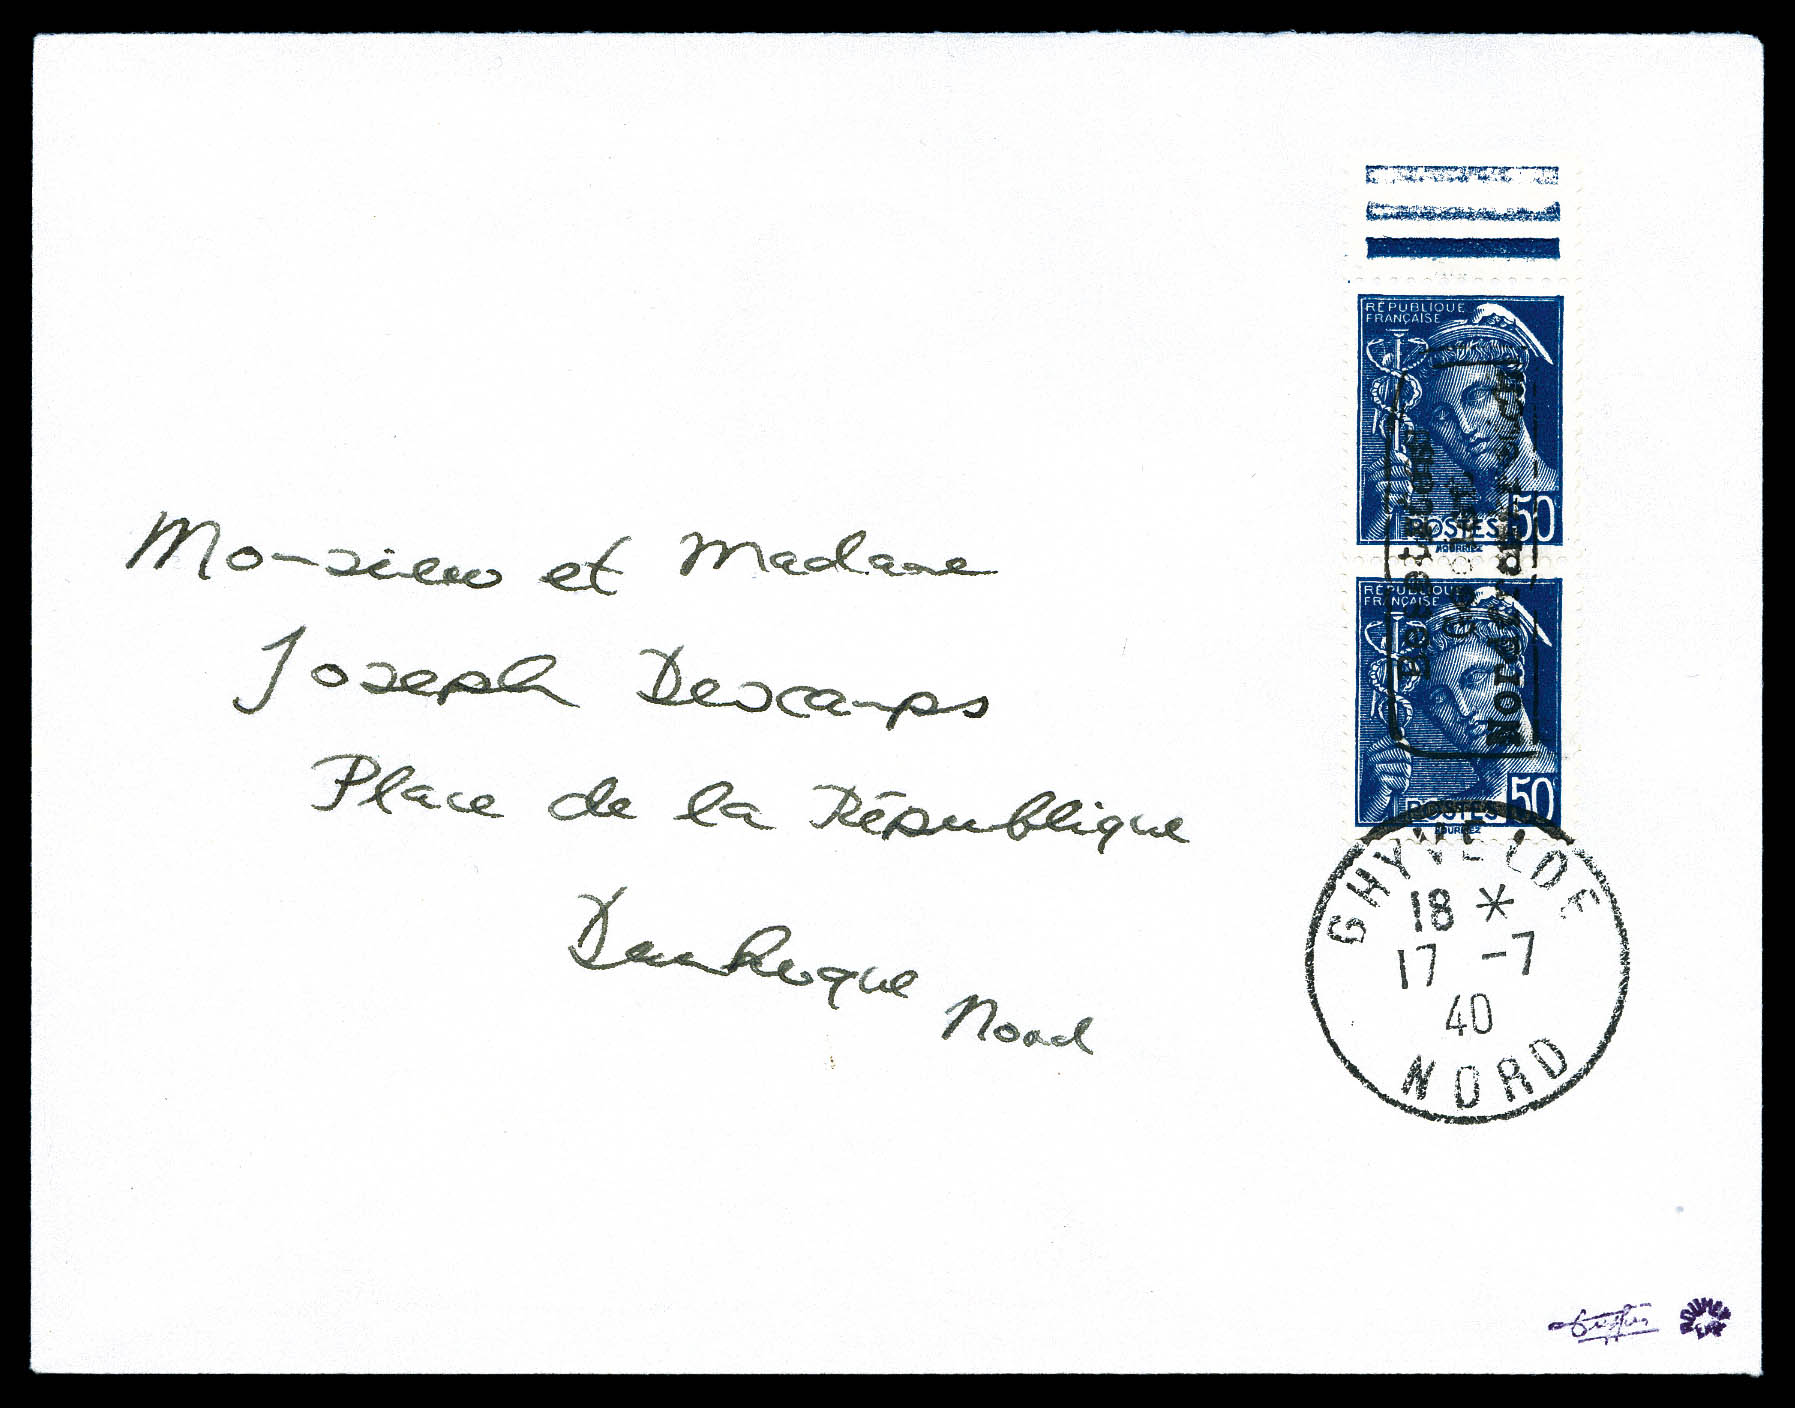 RÉPUBLIQUE
FRANÇAISE
POSTES 50
MOURRIEZ
RÉPUBLIQUE
FRANÇAISE
POSTES 50
MOURRIEZ
Besetztes
Gebiet
Nordfrankreich
Monsieur et Madame
Joseph Descamps
Place de la République
Dunkerque
Nord
GHYVELDE
18 *
17 -7
40
NORD